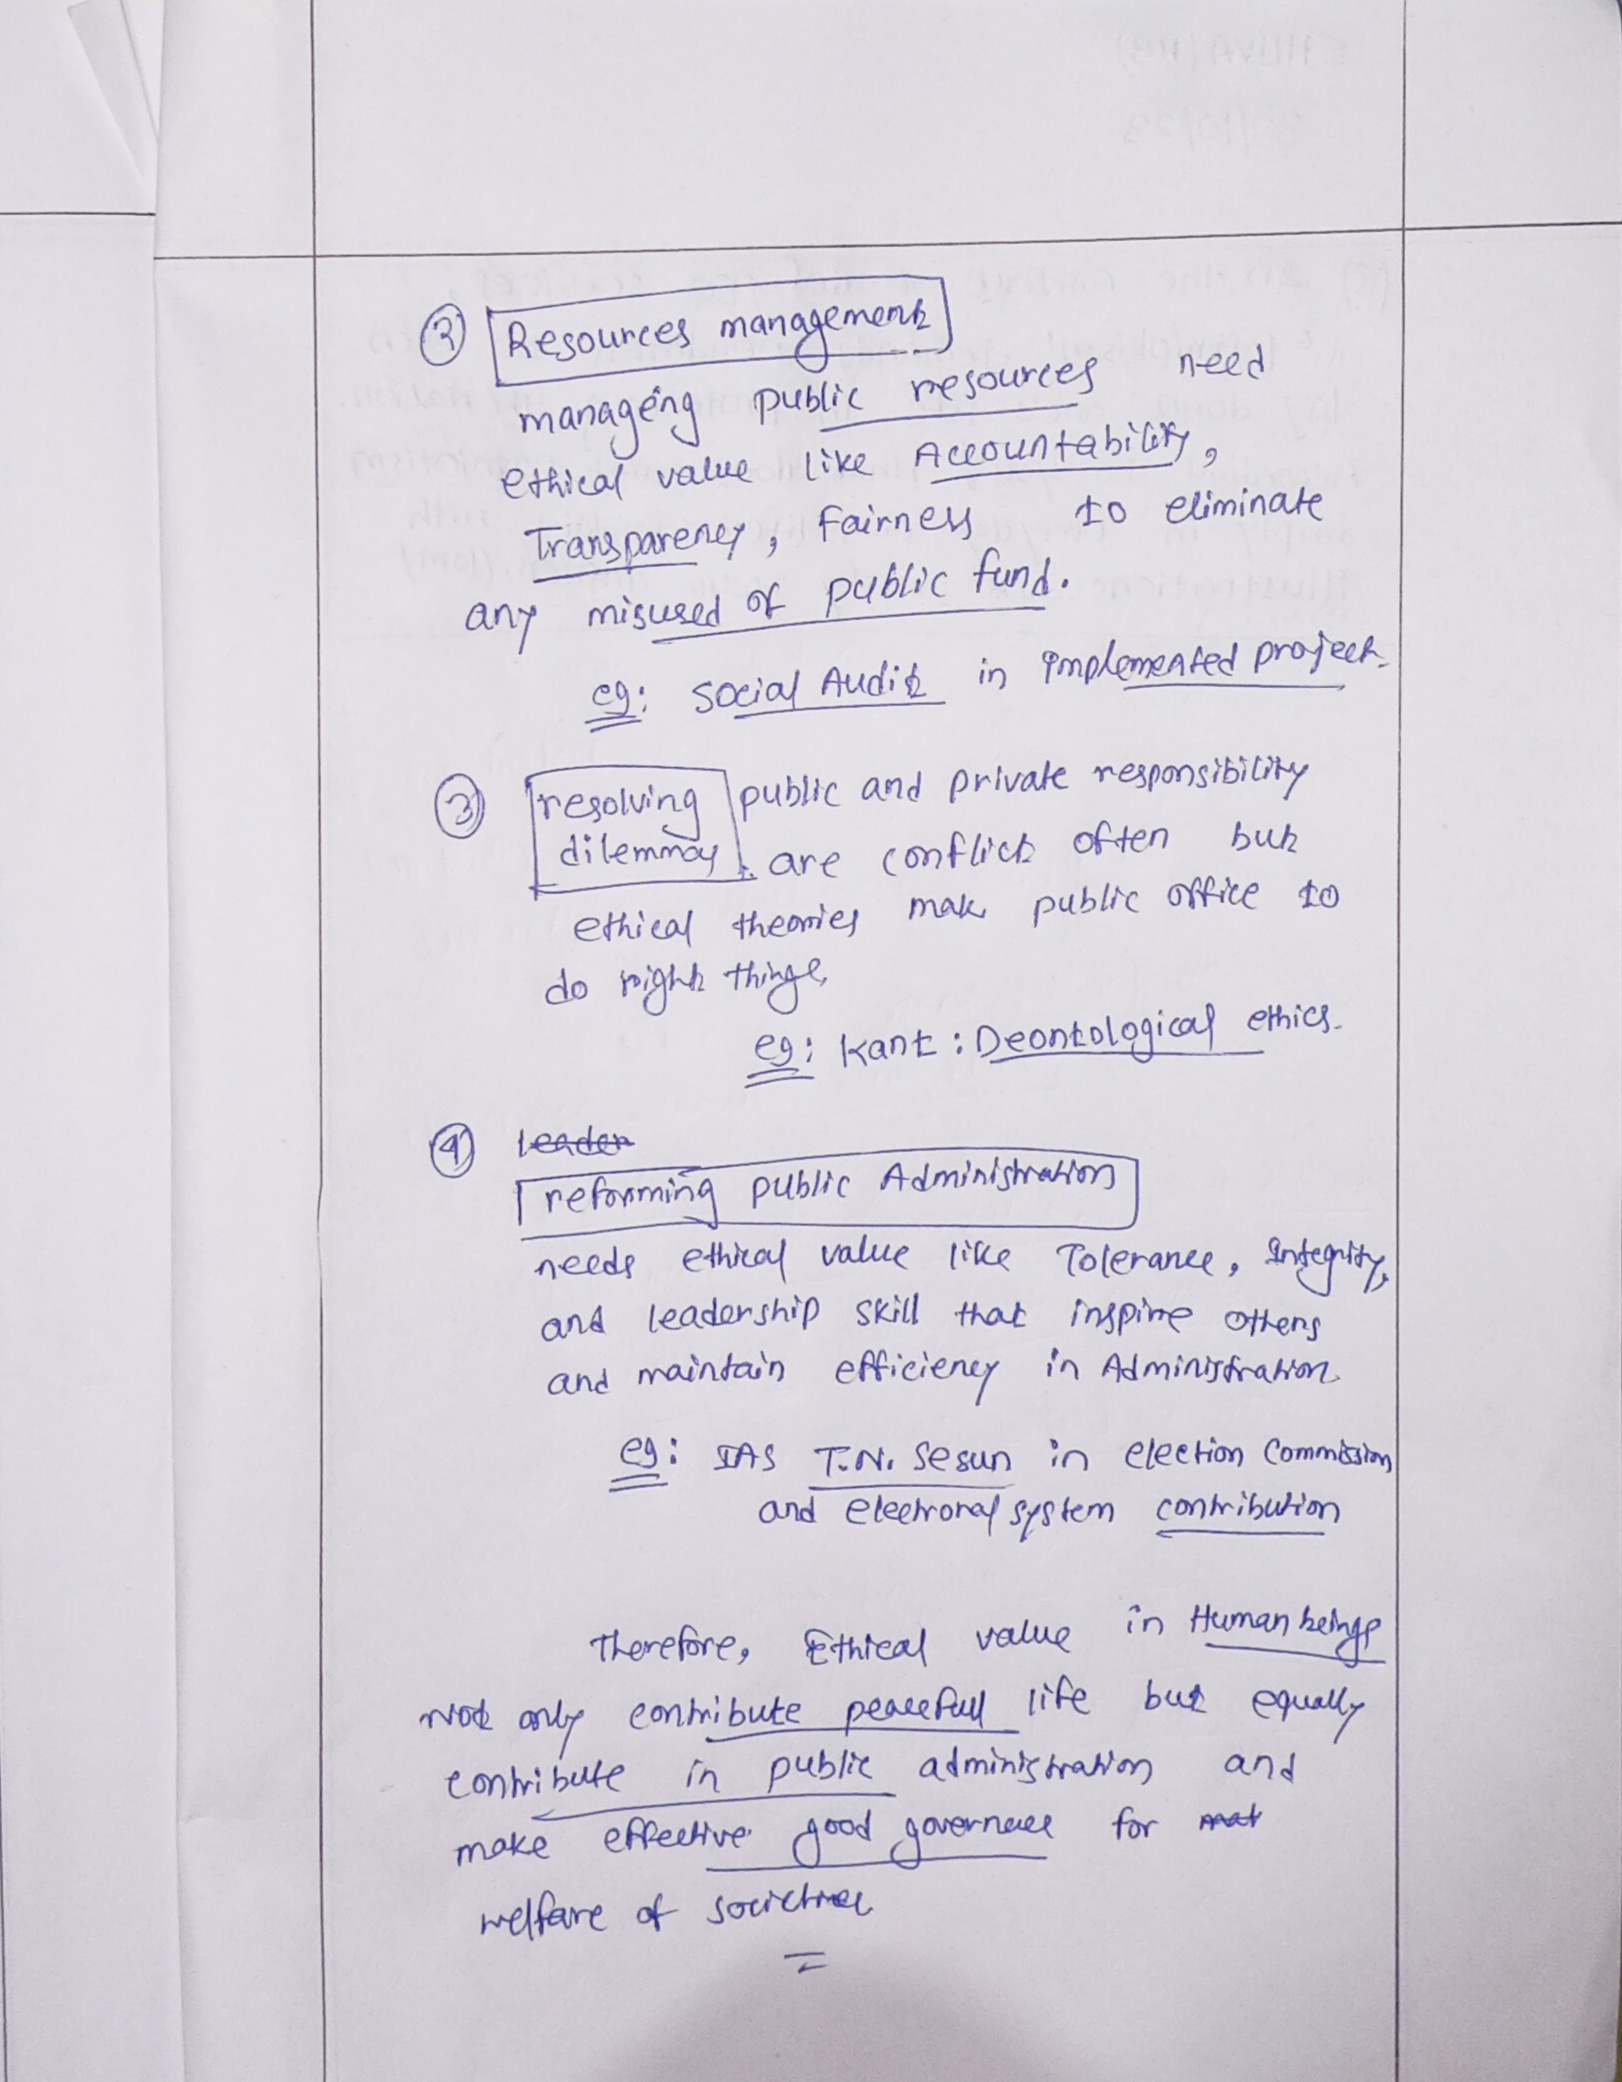 ② Resources management
managing public resources need
ethical value like Accountability,
Transparency, fairness to eliminate
any misused of public fund.
eg: Social Audit in implemented project.
③ resolving public and private responsibility
dilemmas are conflict often but
ethical theories make public office to
do right things
eg: Kant: Deontological ethics.
④ leader
reforming public Administration
needs ethical value like Tolerance, Integrity,
and leadership skill that inspire others
and maintain efficiency in Administration.
eg: IAS T.N. Sesun in election Commission
and electroral system contribution
Therefore, Ethical value in Human beings
Not only contribute peacefull life but equally
contribute in public administration and
make effective good governace for
welfare of